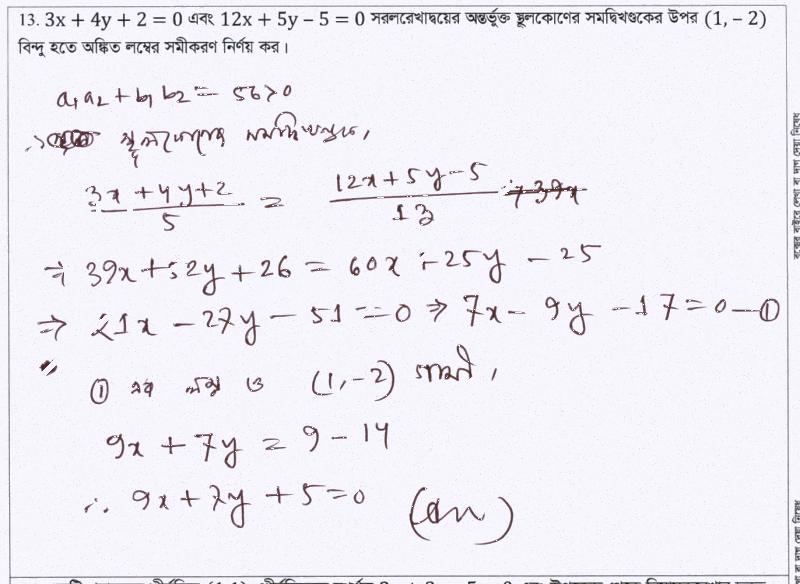 13. 3x + 4y + 2 = 0 এবং 12x + 5y – 5 = 0 সরলরেখাদ্বয়ের অন্তর্ভুক্ত স্থূলকোণের সমদ্বিখণ্ডকের উপর (1, – 2)
বিন্দু হতে অঙ্কিত লম্বের সমীকরণ নির্ণয় কর।
a₁a₂ + b₁b₂ = 56 > 0
∴ স্থূলকোণের সমদ্বিখণ্ডক,
(3x + 4y + 2)/5 = (12x + 5y – 5)/13
⇒ 39x + 52y + 26 = 60x + 25y – 25
⇒ 21x – 27y – 51 = 0 ⇒ 7x – 9y – 17 = 0 — ①
① এর লম্ব ও (1, –2) গামী,
9x + 7y = 9 – 14
∴ 9x + 7y + 5 = 0 (Ans)